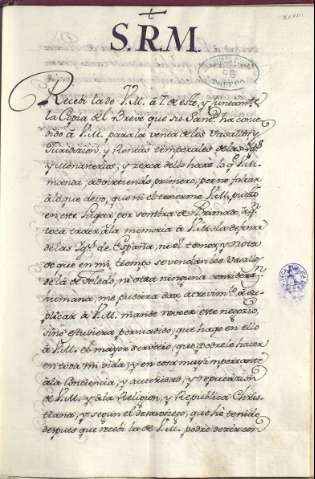 S.R.M.
Recibí la de V.M. a 7. de este, y juntamte.
la Copia del Breve que su Sand. ha conce
dido à V.M. para la venta de los Vasallos, y
Jurisdicion, y Rentas temporales de las Ygls.
y Monasterios, y cerca dello haré lo q V.M.
manda, advirtiendo primero, por no faltar
à lo que devo, que ni el tenerme V.M. puesto
en este lugar por sombra de Primado, à q
toca traer à la memoria à V.M. la defensa
de las Ygls. de España, ni el temor, y nota
de que en mi tiempo se vendan los Vasallos
de la de Toledo, ni otra ninguna consideron.
humana, me pusiera este atrevimto. à su
plicar à V.M. mande rever este negocio,
sino estuviera persuadido, que hago en ello
à V.M. el mayor servicio, que podrè hacer
en toda mi vida, y en cosa muy importante
à la Conciencia, y autoridad, y reputacion
de V.M. y de la Religion, y Republica Chris
tiana, y segun el desconsuelo, que he tenido
despues que recibi la de V.M. podrè decir con